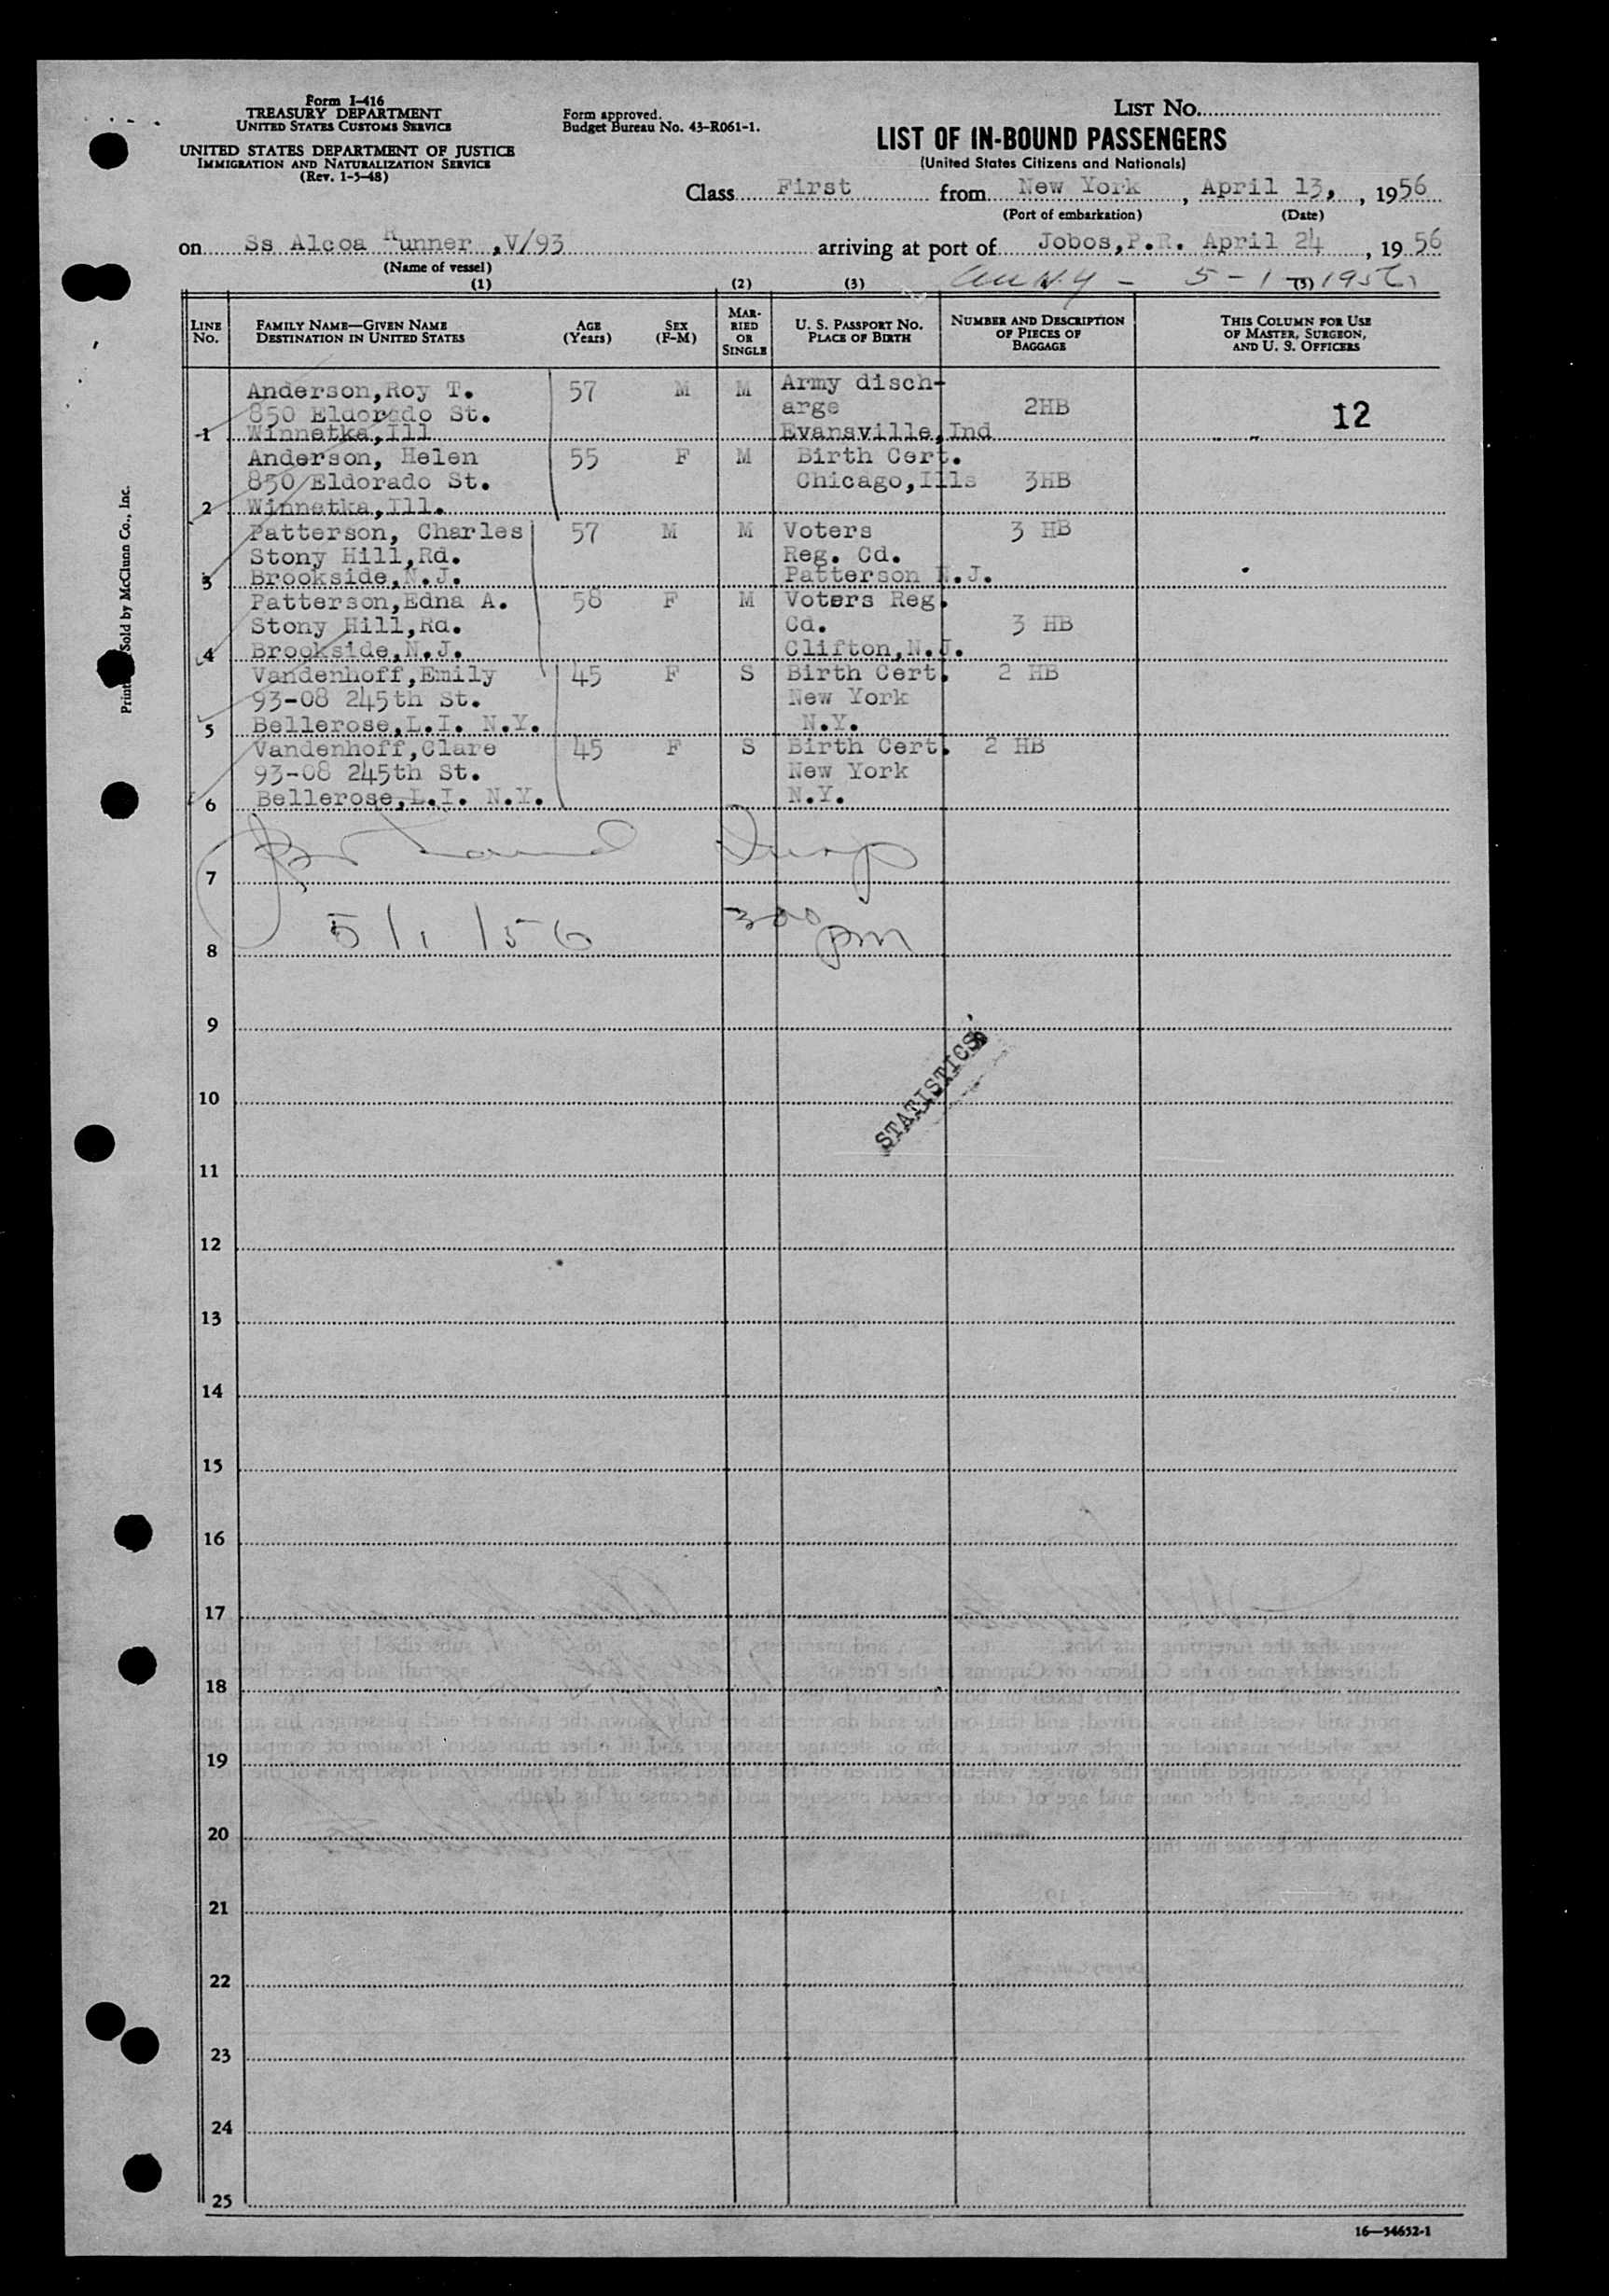 Form I-416
TREASURY DEPARTMENT
UNITED STATES CUSTOMS SERVICE
UNITED STATES DEPARTMENT OF JUSTICE
IMMIGRATION AND NATURALIZATION SERVICE
(Rev. 1-5-48)
Form approved.
Budget Bureau No. 43-R061-1.
LIST NO.
LIST OF IN-BOUND PASSENGERS
(United States Citizens and Nationals)
Class First from New York, April 13, , 1956
(Port of embarkation) (Date)
on Ss Alcoa Runner ,V/93 arriving at port of Jobos,P.R. April 24, 1956
(Name of vessel)
N.Y - 5-1-1956
(1) (2) (3) (3)
LINE No. FAMILY NAME—GIVEN NAME DESTINATION IN UNITED STATES AGE (Years) SEX (F-M) MARRIED OR SINGLE U. S. PASSPORT NO. PLACE OF BIRTH NUMBER AND DESCRIPTION OF PIECES OF BAGGAGE THIS COLUMN FOR USE OF MASTER, SURGEON, AND U. S. OFFICERS
Anderson,Roy T. 57 M M Army disch-
850 Eldorado St. arge 2HB 12
1 Winnetka,Ill Evansville,Ind
Anderson, Helen 55 F M Birth Cert.
850 Eldorado St. Chicago,Ills 3HB
2 Winnetka,Ill.
Patterson, Charles 57 M M Voters 3 HB
Stony Hill,Rd. Reg. Cd.
3 Brookside,N.J. Patterson N.J.
Patterson,Edna A. 58 F M Voters Reg.
Stony Hill,Rd. Cd. 3 HB
4 Brookside,N.J. Clifton,N.J.
Vandenhoff,Emily 45 F S Birth Cert. 2 HB
93-08 245th St. New York
5 Bellerose,L.I. N.Y. N.Y.
Vandenhoff,Clare 45 F S Birth Cert. 2 HB
93-08 245th St. New York
6 Bellerose,L.I. N.Y. N.Y.
7
5/1/56 300 pm
8
9
STATISTICS
10
11
12
13
14
15
16
17
18
19
20
21
22
23
24
25
Sold by McClunn Co., Inc.
16—54652-1